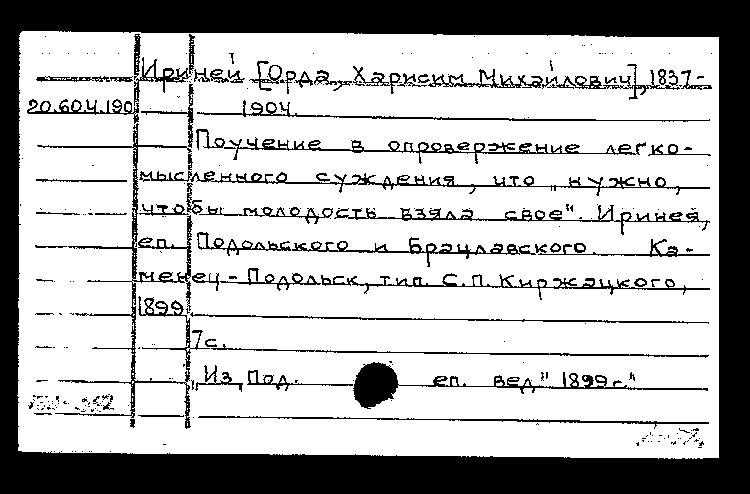 Ириней [Орда, Харисим Михайлович], 1837-
20.60.4.190 1904.
Поучение в опровержение легко-
мысленного суждения, что „нужно,
чтобы молодость взяла свое". Иринея,
еп. Подольского и Брацлавского. Ка-
менец-Подольск, тип. С.П. Киржацкого,
1899
7с.
„Из „Под. еп. вед" 1899г."